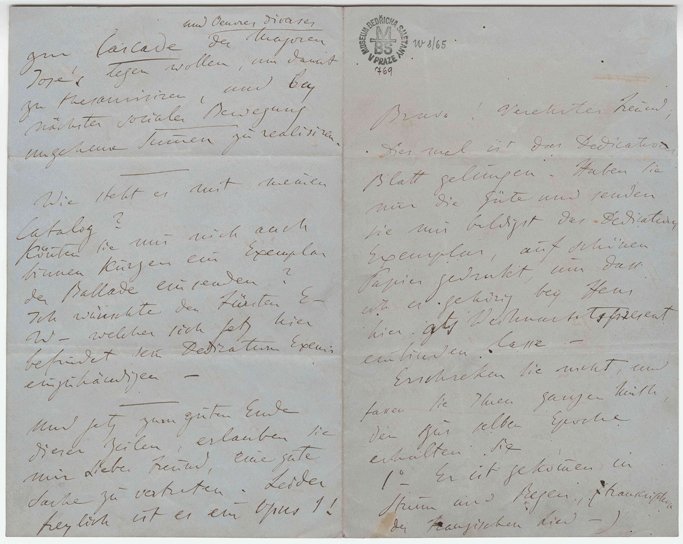 W 8/65
MUSEUM BEDŘICHA SMETANY V PRAZE
MBS
769
Bravo! Verehrter Freund,
Dies mal ist das Dedications
Blatt gelungen. Haben Sie
nur die Güte und senden
Sie mir baldigst das Dedications
Exemplar, auf schönem
Papier gedruckt, um dass
ich es gehörig bey
hier als Weihnachtspresent
einbinden lasse –
Erschrecken Sie nicht, und
fassen Sie Ihren ganzen Muth,
den zur selben Epoche
erhalten Sie
1° Er ist gekommen in
Sturm und Regen, (Transcription
des Franzischen Lied –)
und Oeuvres diverses
zur Cascade der Majoren
José's legen wollen, um damit
zu thesaurisiren, und bey
nächster socialer Bewegung
ungeheure Summen zu realisiren.
Wie steht es mit meinen
Catalog?
Könten Sie mir nicht auch
binnen Kurzen ein Exemplar
der Ballade einsenden?
Ich wünschte den Fürsten E–
W– welcher sich jetzt hier
befindet sein Dedications Exemp.
einzuhändigen –
Und jetzt zum guten Ende
dieser Zeilen, erlauben Sie
mir Lieber Freund, eine gute
Sache zu vertreten. Leider
freylich ist es ein Opus 1!